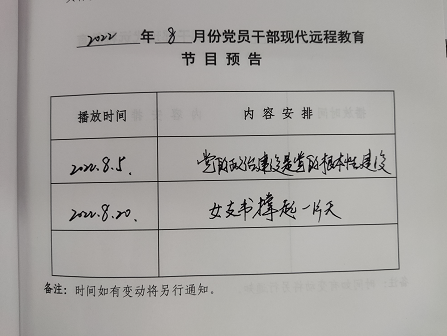 2022 年 8 月份党员干部现代远程教育
节目预告
播放时间 内容安排
2022.8.5. 党的政治建设是党的根本性建设
2022.8.20. 女支书撑起一片天
备注：时间如有变动将另行通知。